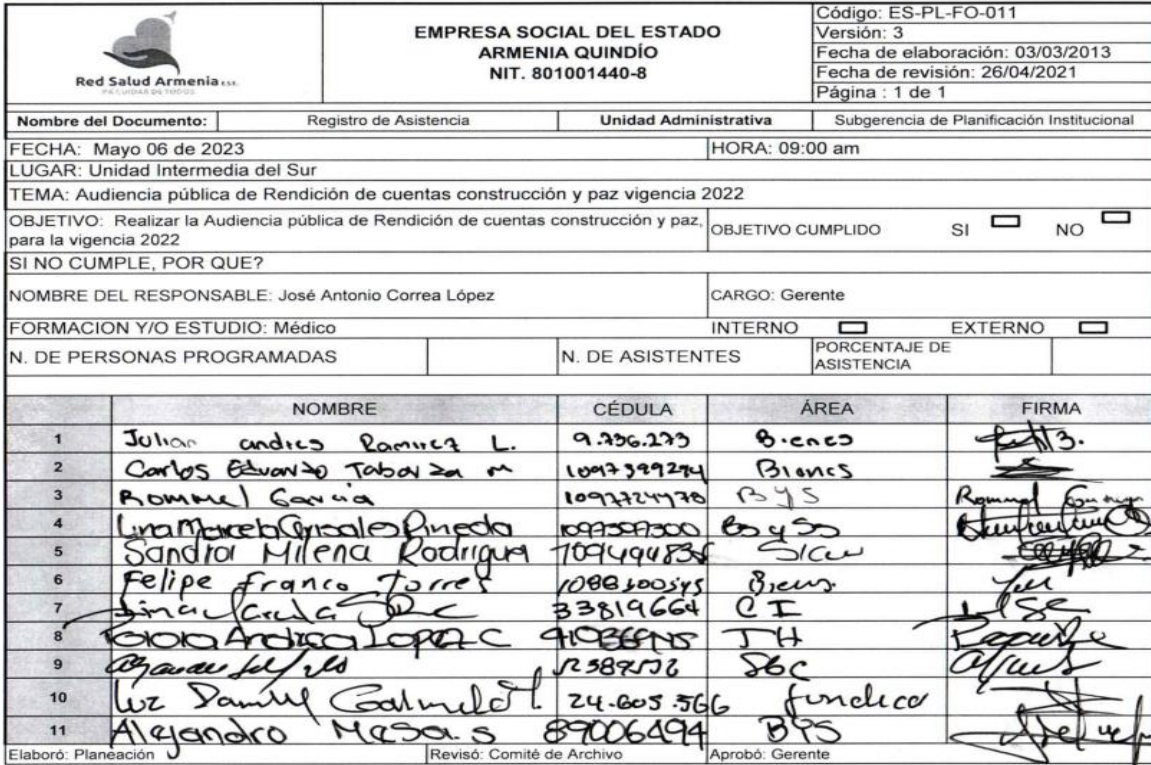 Red Salud Armenia E.S.E.
PA CUIDAR DE TODOS
EMPRESA SOCIAL DEL ESTADO
ARMENIA QUINDÍO
NIT. 801001440-8
Código: ES-PL-FO-011
Versión: 3
Fecha de elaboración: 03/03/2013
Fecha de revisión: 26/04/2021
Página : 1 de 1
Nombre del Documento: Registro de Asistencia Unidad Administrativa Subgerencia de Planificación Institucional
FECHA: Mayo 06 de 2023 HORA: 09:00 am
LUGAR: Unidad Intermedia del Sur
TEMA: Audiencia pública de Rendición de cuentas construcción y paz vigencia 2022
OBJETIVO: Realizar la Audiencia pública de Rendición de cuentas construcción y paz,
para la vigencia 2022
OBJETIVO CUMPLIDO SI NO
SI NO CUMPLE, POR QUE?
NOMBRE DEL RESPONSABLE: José Antonio Correa López CARGO: Gerente
FORMACION Y/O ESTUDIO: Médico INTERNO EXTERNO
N. DE PERSONAS PROGRAMADAS N. DE ASISTENTES PORCENTAJE DE
ASISTENCIA
NOMBRE CÉDULA ÁREA FIRMA
1 Julian andres Ramirez L. 9.736.273 Bienes
2 Carlos Eduardo M
3 Rommel Garcia BYS Rommel
4 Lina Marcela Grisales Pineda 1097397300
5 Sandra Milena
6 Felipe Franco Torres
7 33819664 CI
8 Andrea Lopez C TH
9
10 Luz 24.605.566
11 Alejandro 89006494 BYS
Elaboró: Planeación Revisó: Comité de Archivo Aprobó: Gerente